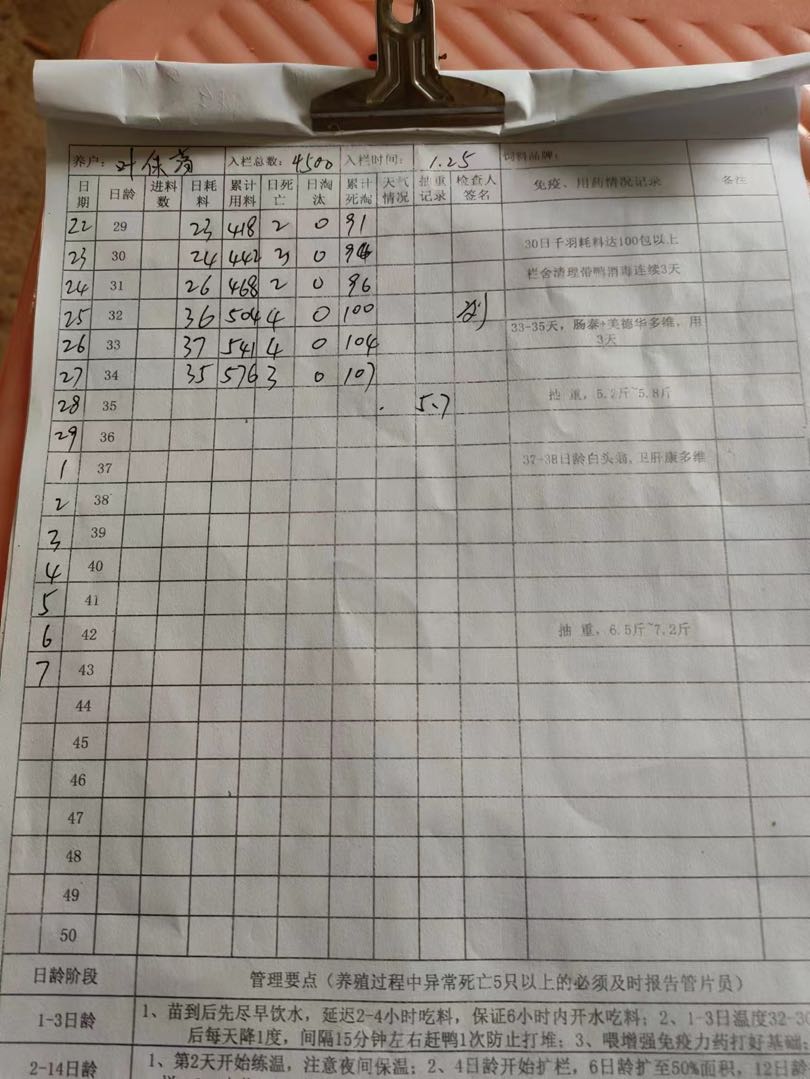 养户: 叶保 入栏总数: 4500 入栏时间: 1.25 饲料品牌:
日期 日龄 进料数 日耗料 累计用料 日死亡 日淘汰 累计死淘 天气情况 抽重记录 检查人签名 免疫、用药情况记录 备注
22 29 23 418 2 0 91
23 30 24 442 3 0 94 30日千羽耗料达100包以上
24 31 26 468 2 0 96 栏舍清理带鸭消毒连续3天
25 32 36 504 4 0 100
26 33 37 541 4 0 104 33-35天，肠泰+美德华多维，用3天
27 34 35 576 3 0 107
28 35 5.7 抽 重，5.2斤~5.8斤
29 36
1 37 37-38日龄白头翁，卫肝康多维
2 38
3 39
4 40
5 41
6 42 抽 重，6.5斤~7.2斤
7 43
44
45
46
47
48
49
50
日龄阶段 管理要点（养殖过程中异常死亡5只以上的必须及时报告管片员）
1-3日龄 1、苗到后先尽早饮水，延迟2-4小时吃料，保证6小时内开水吃料；2、1-3日温度32-30
后每天降1度，间隔15分钟左右赶鸭1次防止打堆；3、喂增强免疫力药打好基础；
2-14日龄 1、第2天开始练温，注意夜间保温；2、4日龄开始扩栏，6日龄扩至50%面积，12日龄